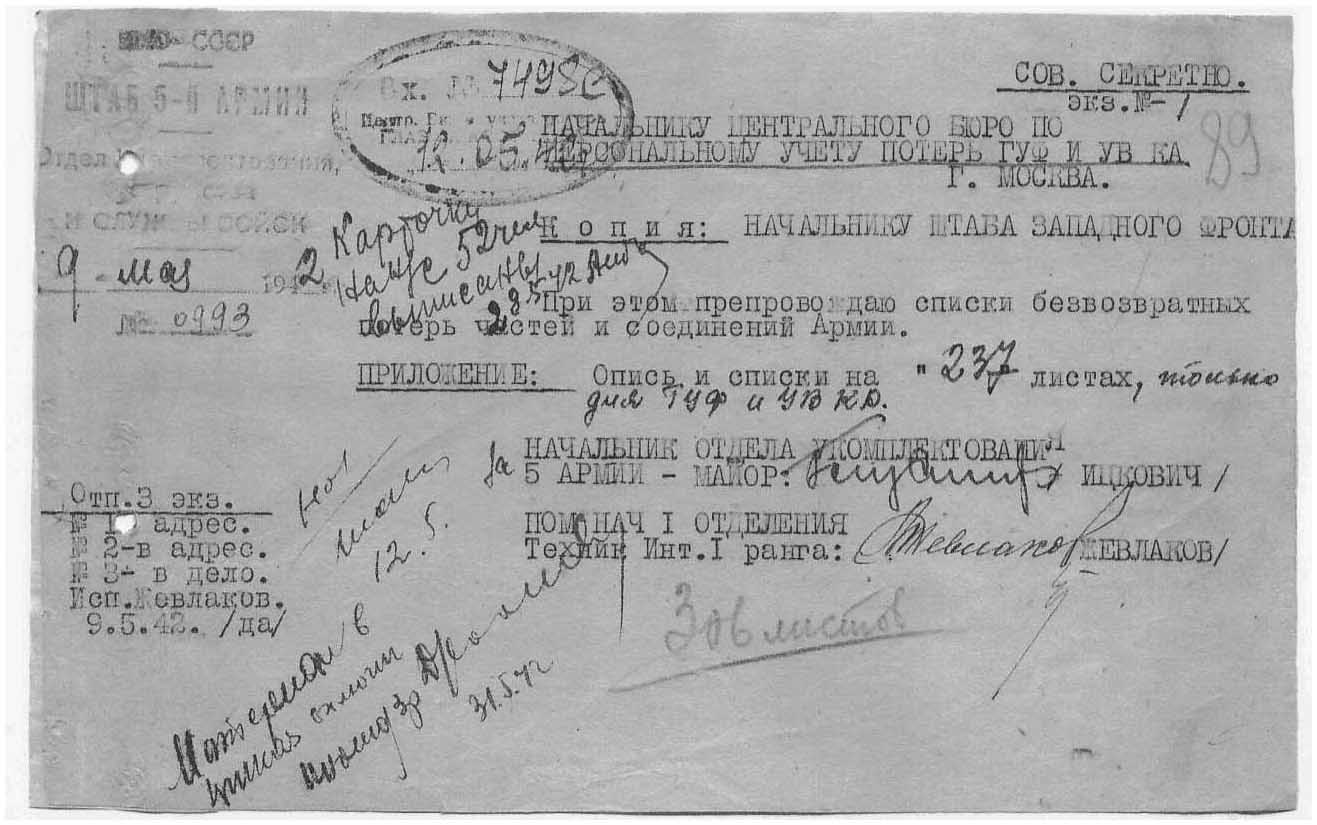 СССР
ШТАБ 5-й АРМИИ
Отдел
И СЛУЖБЫ ВОЙСК
9 - мая 1942
№ 0993
Вх. 7498с
05.42
СОВ. СЕКРЕТНО.
экз.№- 1
89
НАЧАЛЬНИКУ ЦЕНТРАЛЬНОГО БЮРО ПО
ПЕРСОНАЛЬНОМУ УЧЕТУ ПОТЕРЬ ГУФ И УВ КА
Г. МОСКВА.
К о п и я: НАЧАЛЬНИКУ ШТАБА ЗАПАДНОГО ФРОНТА
Карточки
на 52 чел
выписаны
При этом препровождаю списки безвозвратных
потерь частей и соединений Армии.
ПРИЛОЖЕНИЕ: Опись и списки на "237 листах, только
для ГУФ и УВ КА.
За НАЧАЛЬНИК ОТДЕЛА УКОМПЛЕКТОВАНИЯ
5 АРМИИ - МАЙОР: ИЦКОВИЧ/
ПОМ НАЧ I ОТДЕЛЕНИЯ
Техник Инт.I ранга: Жевлаков ЖЕВЛАКОВ/
Отп.3 экз.
№ 1- адрес.
№ 2-в адрес.
№ 3- в дело.
Исп.Жевлаков.
9.5.42. /да/
12.5.
306 листов
31.5.42